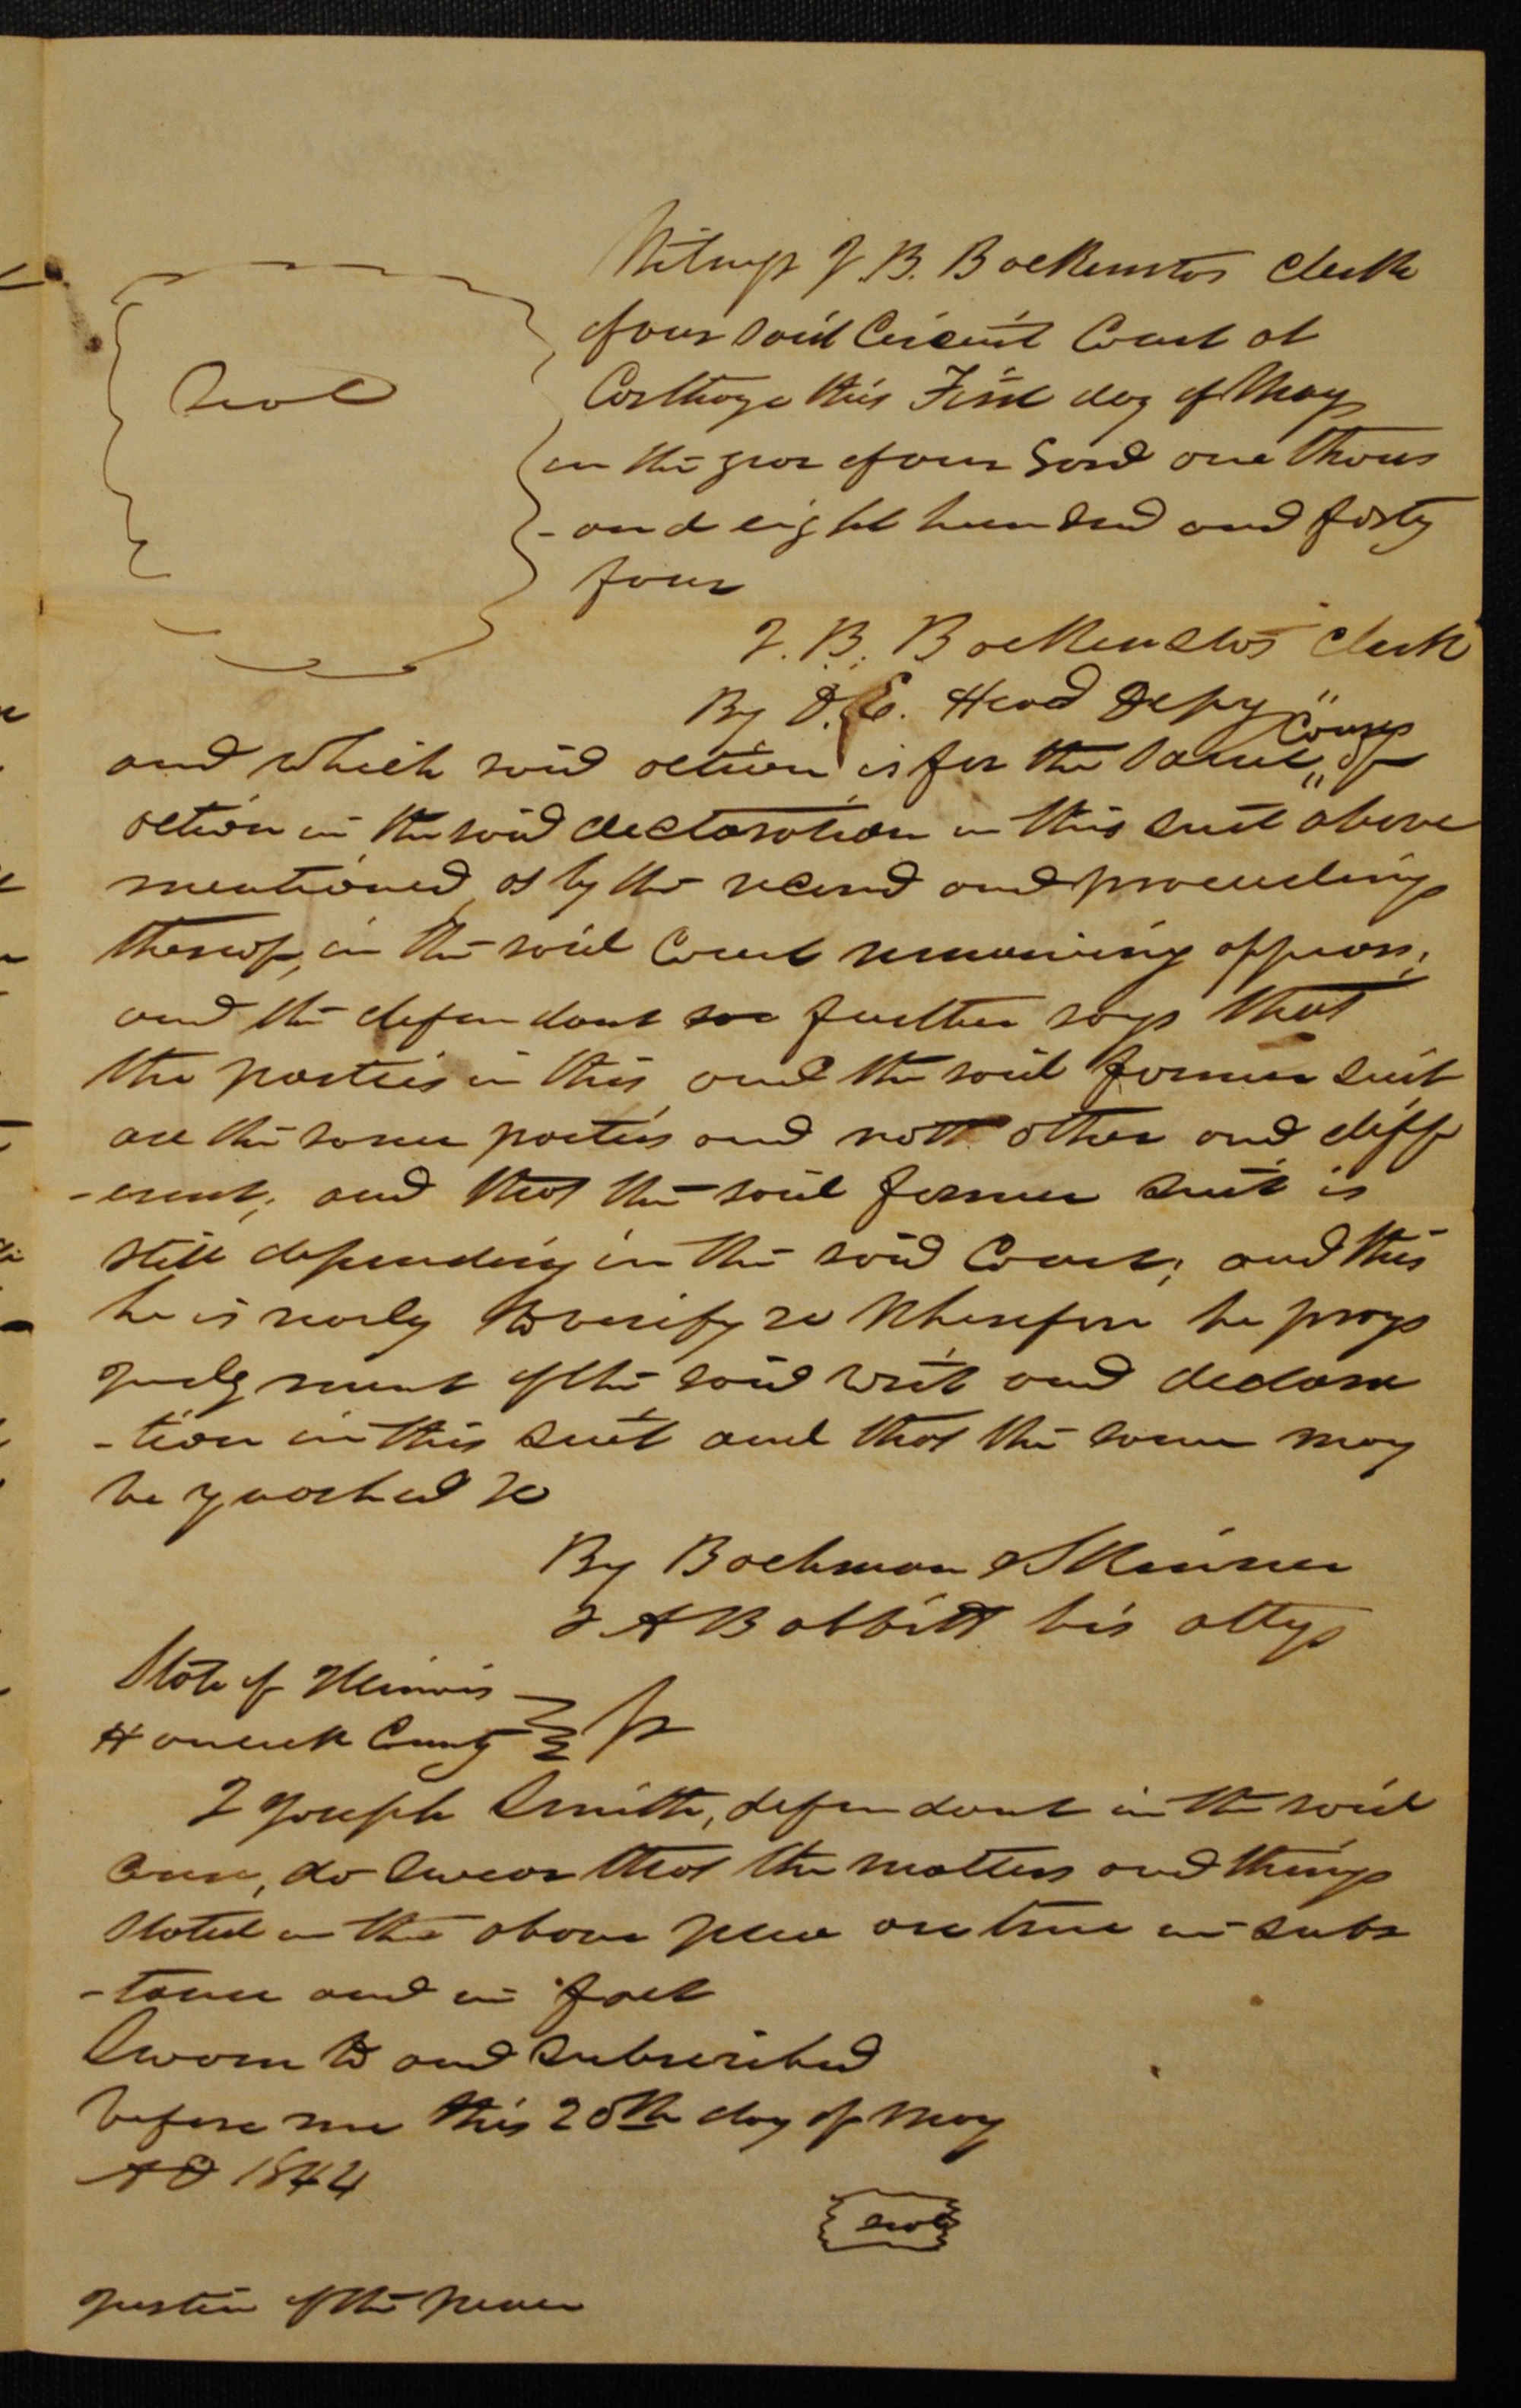 Witness J. B. Backenstos Clerk
of our said Circuit Court at
Seal
Carthage this First day of May
in the year of our Lord one thous
-and eight hundred and forty
four
J. B. Backenstos Clerk
By D. E. Head Depy
and which said action is for the same "Causes" of
action in the said declaration in this suit above
mentioned, as by the record and proceedings
thereof, in the said Court remaining appears;
and the defendant further says that
the parties in this, and the said former suit
are the same parties and nott other and diff
-erent; and that the said former suit is
still depending in the said Court; and this
he is ready to verify &c Wherefore he prays
judgment of the said writ and declara
-tion in this suit and that the same may
be quashed &c
By Bachman & Skinner
& A Babbitt his attys
State of Illinois
Hancock County } ss
I Joseph Smith, defendant in the said
cause, do swear that the matters and things
stated in the above plea are true in subs
-tance and in fact
Sworn to and subscribed
before me this 20th day of May
AD 1844
seal
Justice of the peace